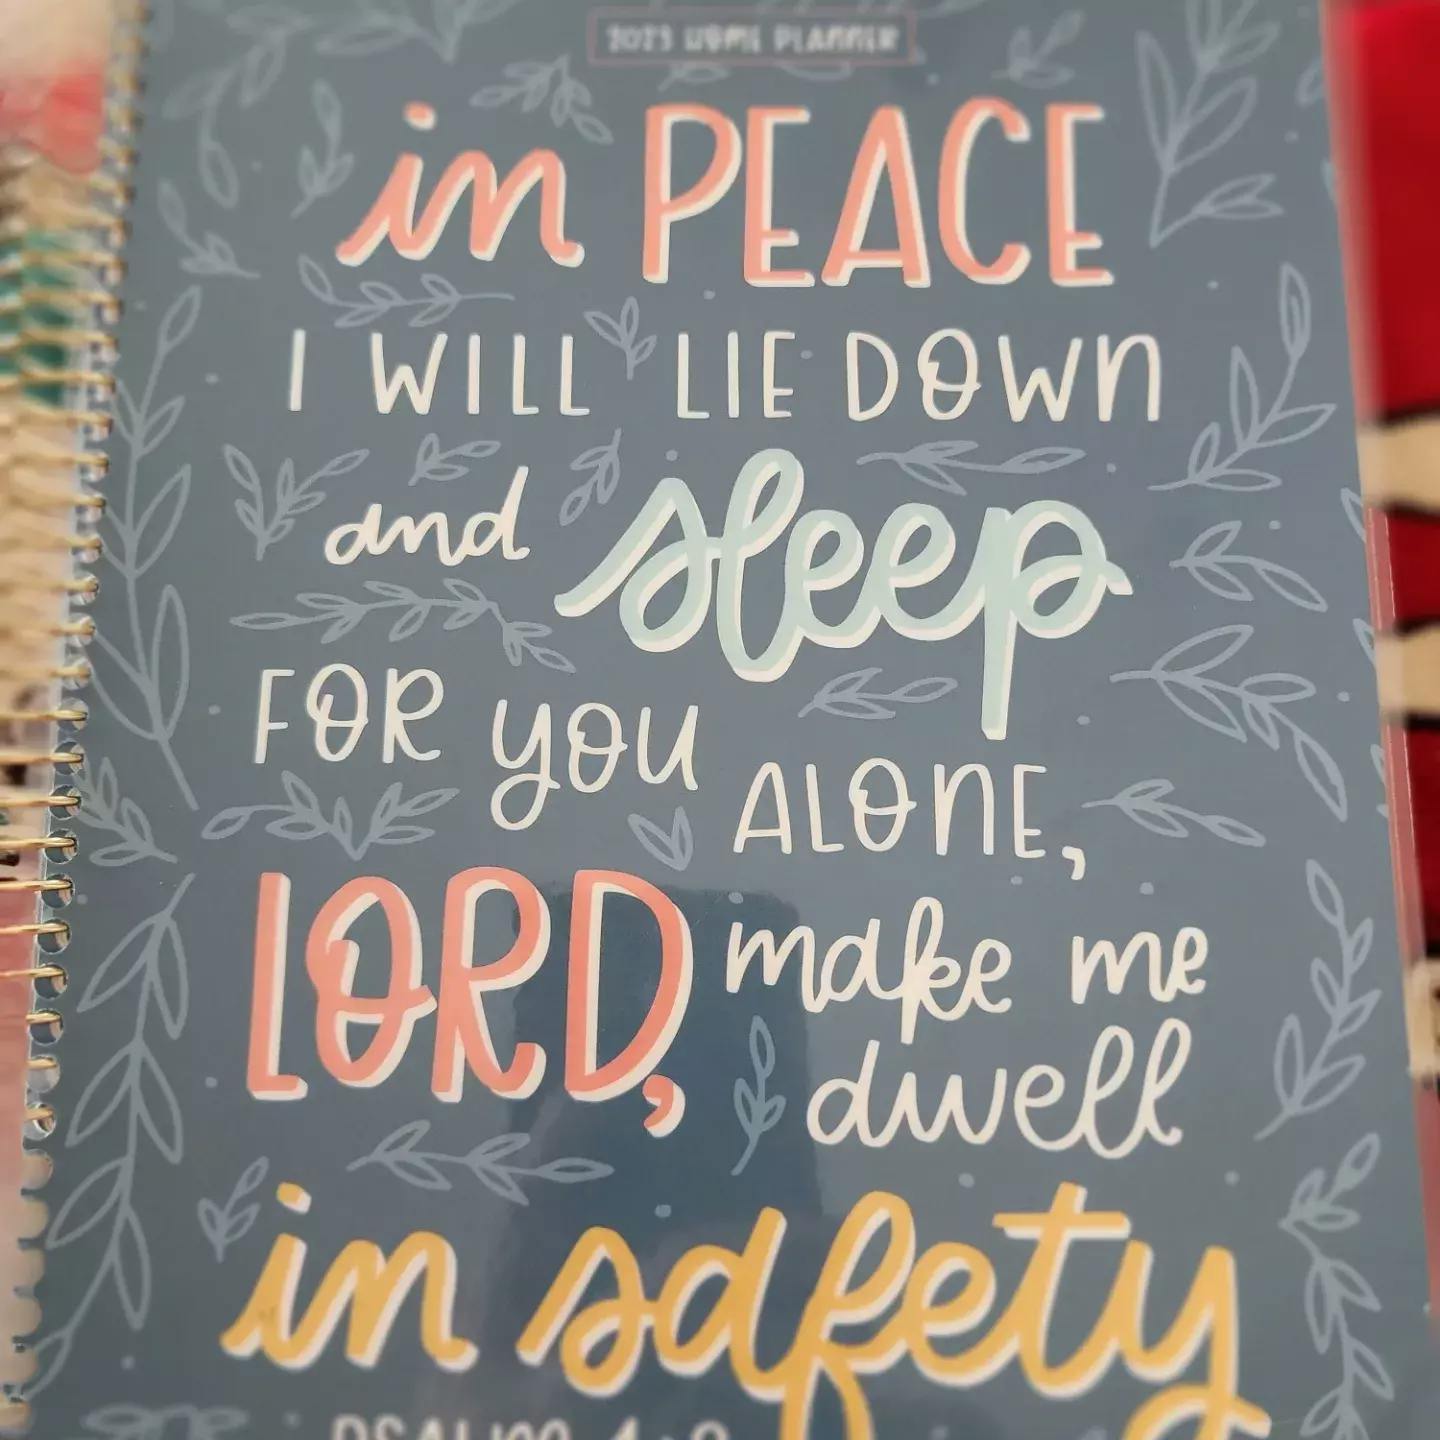 2023 HOME PLANNER
in PEACE
I WILL LIE DOWN
and sleep
FOR YOU ALONE,
LORD, make me
dwell
in safety
PSALM 4:8